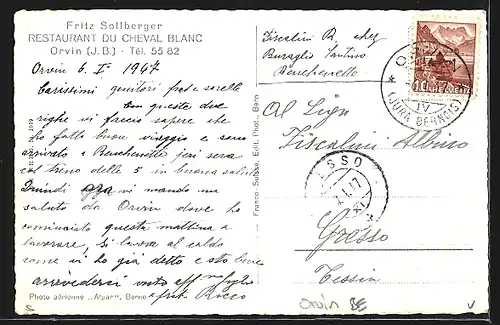 Fritz Sollberger
RESTAURANT DU CHEVAL BLANC
Orvin (J.B.) - Tél. 55 82
Orvin 6. I° 1947
Carissimi genitori frat e sorelle
Con queste due
righe vi faccio sapere che
ho fatto buon viaggio e sono
arrivato a Benchenette jeri sera
col treno delle 5 in buona salute
Quindi ora vi mando un
saluto da Orvin dove ho
cominciato questa mattina a
lavorare, si lavora al caldo
come vi ho già detto e sto bene
arrevederci vostro eff figlio
e frat. Rocco
Photo aérienne „Alpar“, Berne
Franco Suisse, Edit. Phot., Bern
Fiscalini R. chez
Buraglio Santino
Benchenette
Al Sign
Fiscalini Albino
Gresso
Tessin
ORVIN
IV
(JURA BERNOIS)
10 HELVETIA
ESSO
Orvin BE